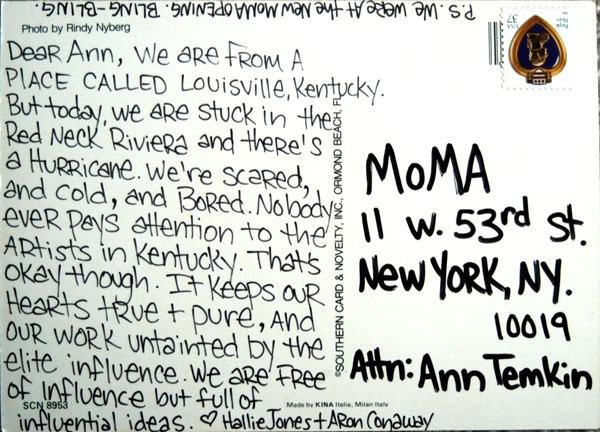 P.S. We were at the new MoMA opening. Bling-Bling.
Photo by Rindy Nyberg
Dear Ann, We are from a
place called Louisville, Kentucky.
But today, we are stuck in the
Red Neck Riviera and there's
a Hurricane. We're scared,
and cold, and Bored. Nobody
ever pays attention to the
Artists in Kentucky. That's
okay though. It keeps our
Hearts true + pure, and
our work untainted by the
elite influence. We are free
of Influence but full of
influential ideas. ♡ Hallie Jones + Aron Conaway
SCN 8953
©SOUTHERN CARD & NOVELTY, INC., ORMOND BEACH, FL
Made by KINA Italia, Milan Italy
USA
37
MoMA
11 W. 53rd St.
New York, NY.
10019
Attn: Ann Temkin